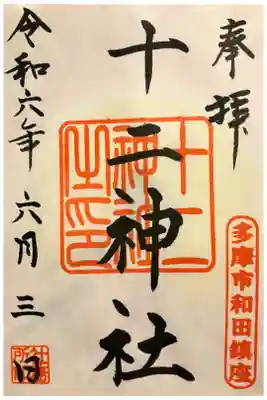 奉拝
多摩市和田鎮座
十二神社
十二神社之印
令和六年六月三日